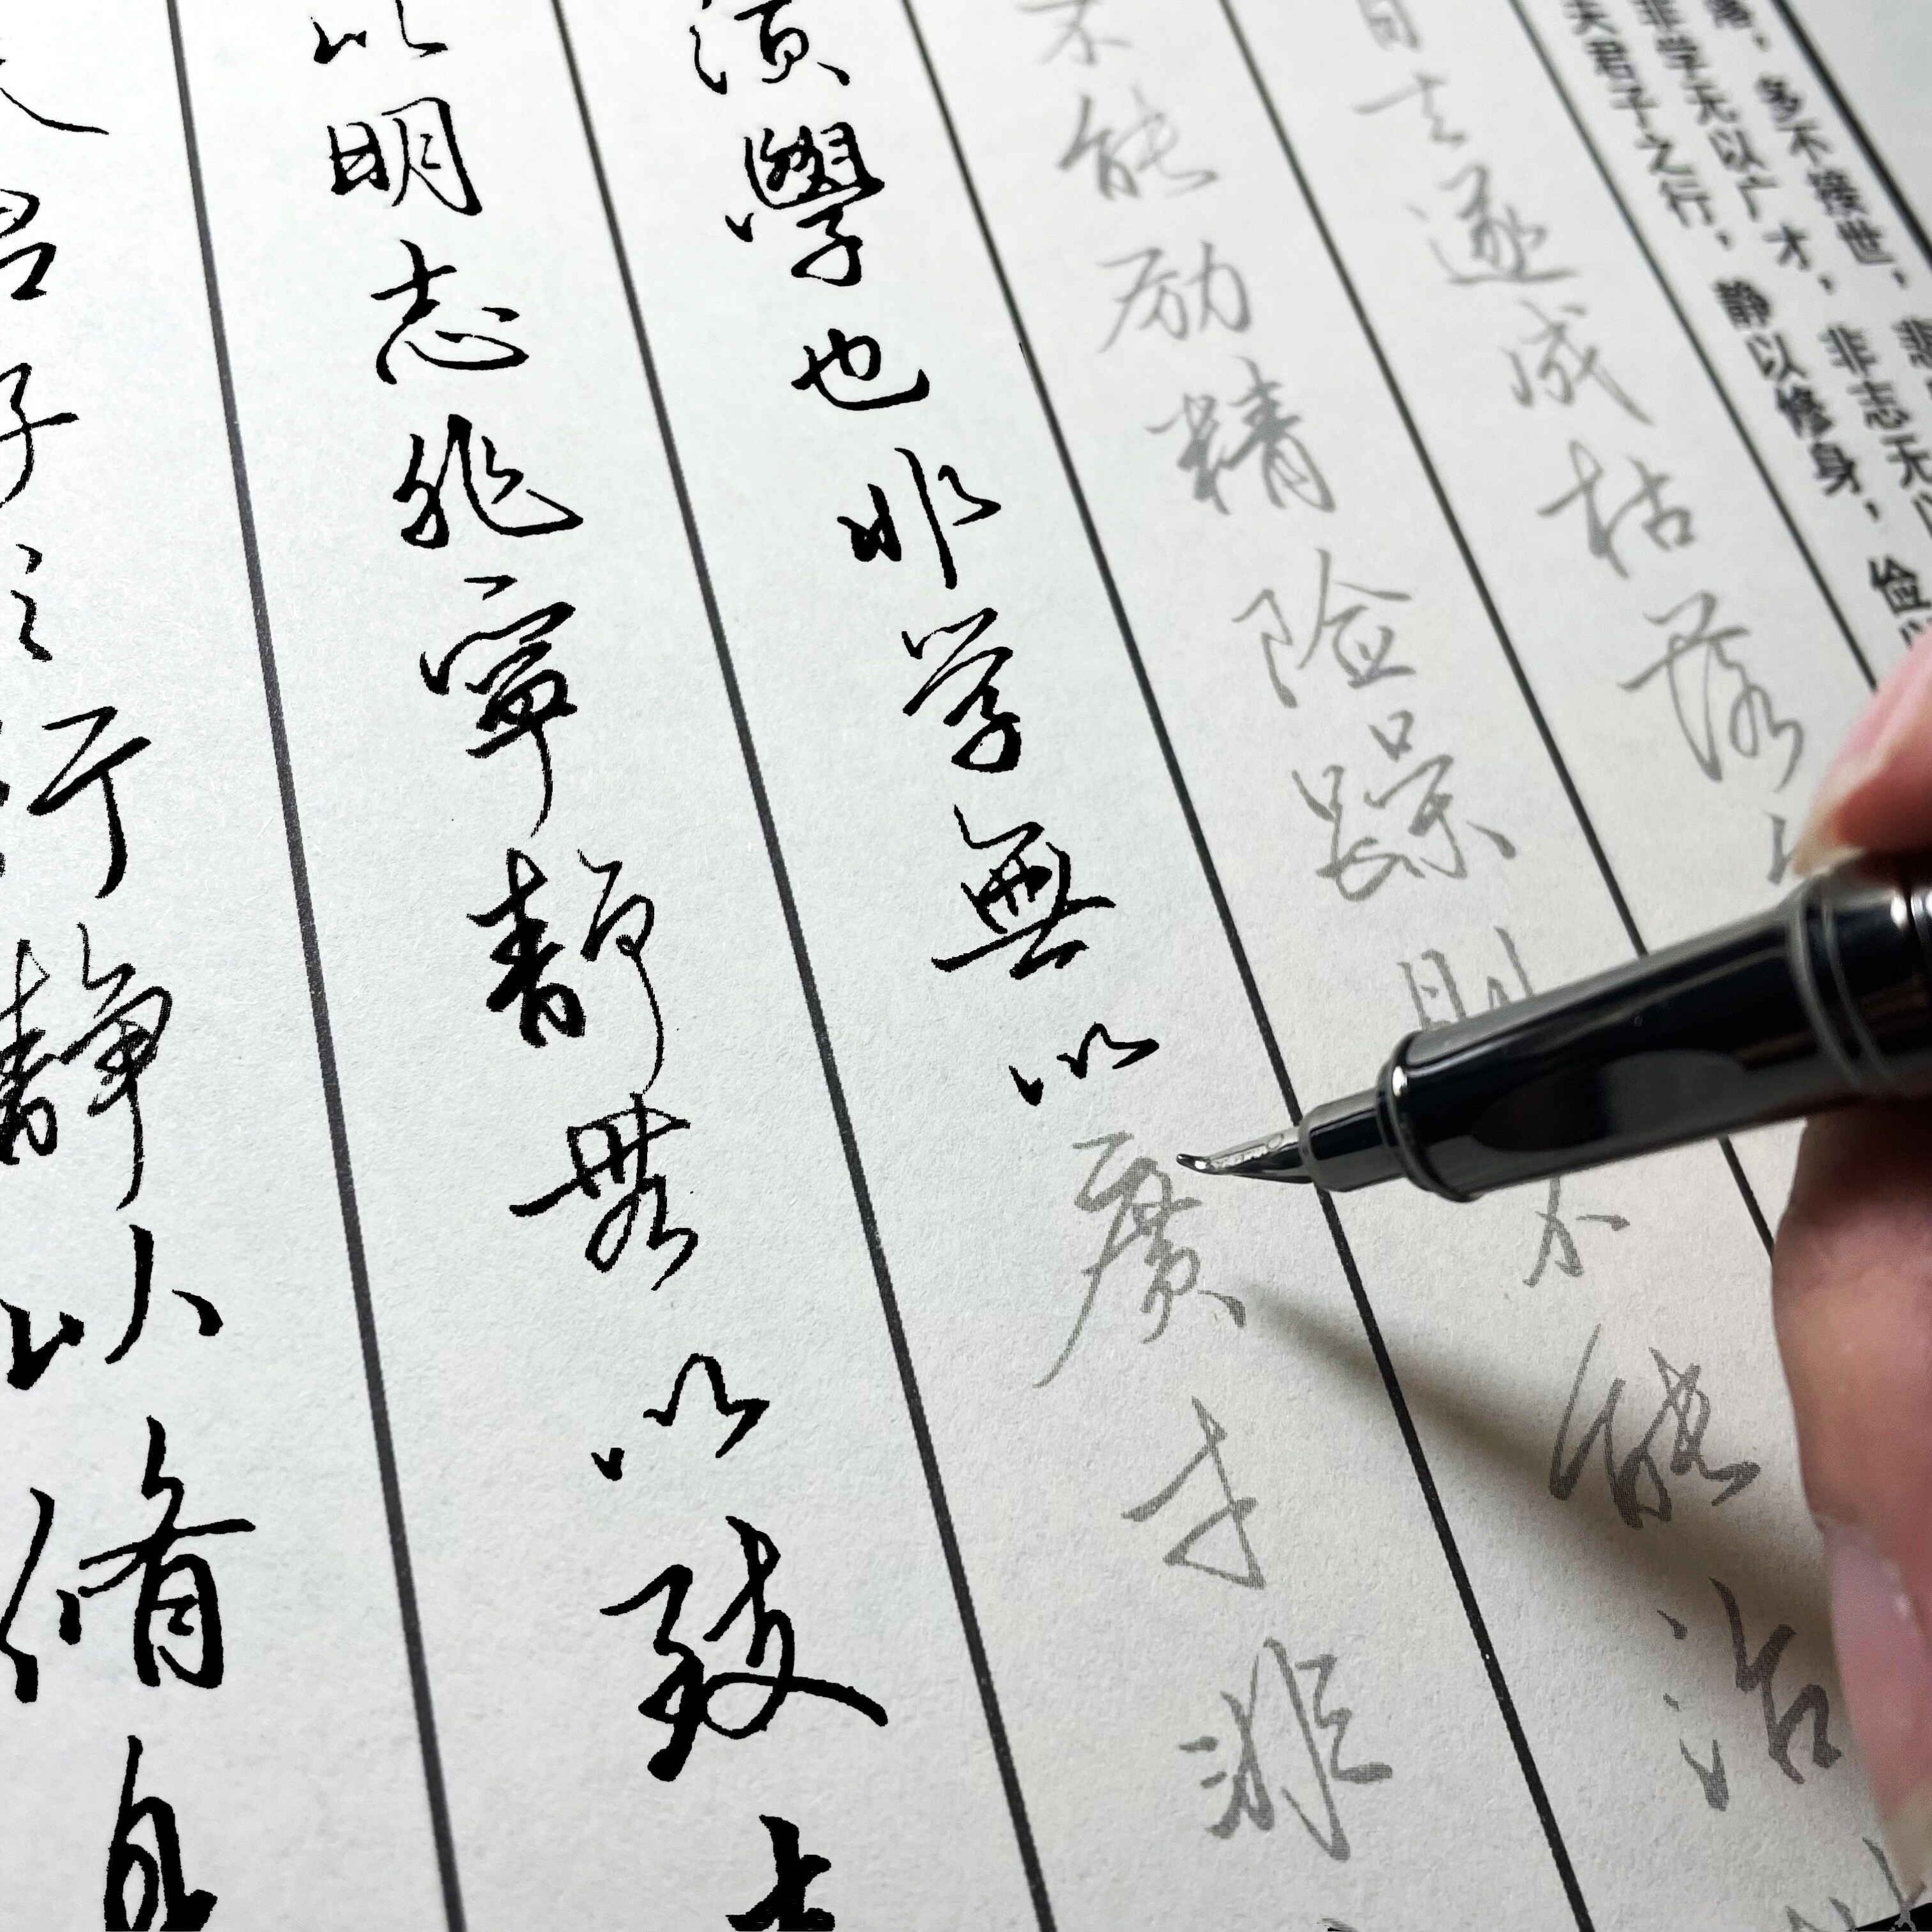 君子之行靜以脩身
以明志非寧靜無以致
須學也非学無以廣才非
不能励精险躁则不能治
日去遂成枯落
夫君子之行，静以修身，俭以
非学无以广才，非志无
落，多不接世，悲